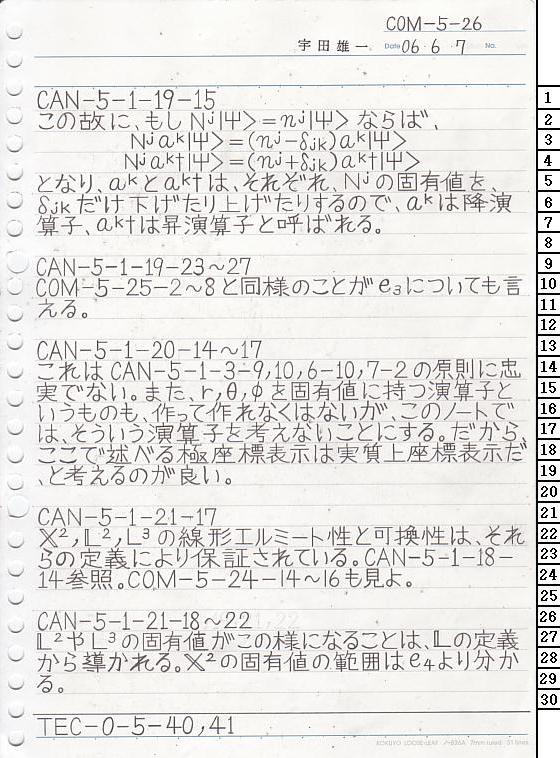 COM-5-26
宇田雄一 Date 06.6.7 No.
CAN-5-1-19-15
この故に、もし Nʲ|Ψ>=nʲ|Ψ> ならば、
Nʲaᵏ|Ψ>=(nʲ-δⱼₖ)aᵏ|Ψ>
Nʲaᵏ†|Ψ>=(nʲ+δⱼₖ)aᵏ†|Ψ>
となり、aᵏとaᵏ†は、それぞれ、Nʲの固有値を、
δⱼₖだけ下げたり上げたりするので、aᵏは降演
算子、aᵏ†は昇演算子と呼ばれる。
CAN-5-1-19-23~27
COM-5-25-2~8と同様のことがe₃についても言
える。
CAN-5-1-20-14~17
これはCAN-5-1-3-9,10,6-10,7-2の原則に忠
実でない。また、r,θ,φを固有値に持つ演算子と
いうものも、作って作れなくはないが、このノートで
は、そういう演算子を考えないことにする。だから、
ここで述べる極座標表示は実質上座標表示だ
、と考えるのが良い。
CAN-5-1-21-17
𝕏²,𝕃²,L³の線形エルミート性と可換性は、それ
らの定義により保証されている。CAN-5-1-18-
14参照。COM-5-24-14~16も見よ。
CAN-5-1-21-18~22
𝕃²やL³の固有値がこの様になることは、𝕃の定義
から導かれる。𝕏²の固有値の範囲はe₄より分か
る。
TEC-0-5-40,41
KOKUYO LOOSE-LEAF ノ-836A 7mm ruled 31 lines
1
2
3
4
5
6
7
8
9
10
11
12
13
14
15
16
17
18
19
20
21
22
23
24
25
26
27
28
29
30